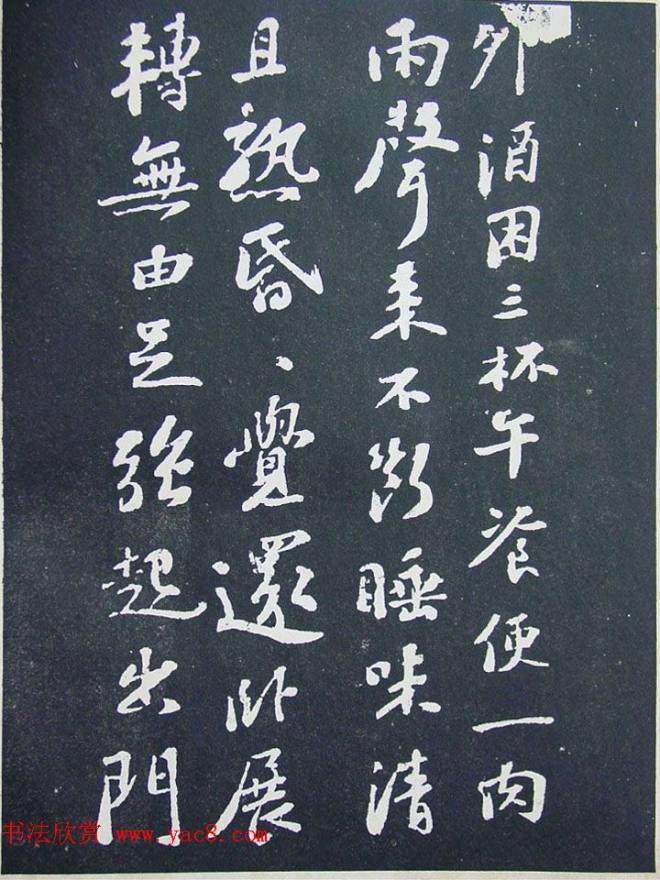 卯酒困三杯午餐便一肉
雨聲来不断睡味清
且熟昏〻覺還卧展
轉無由足强起出門
书法欣赏 www.yac8.com